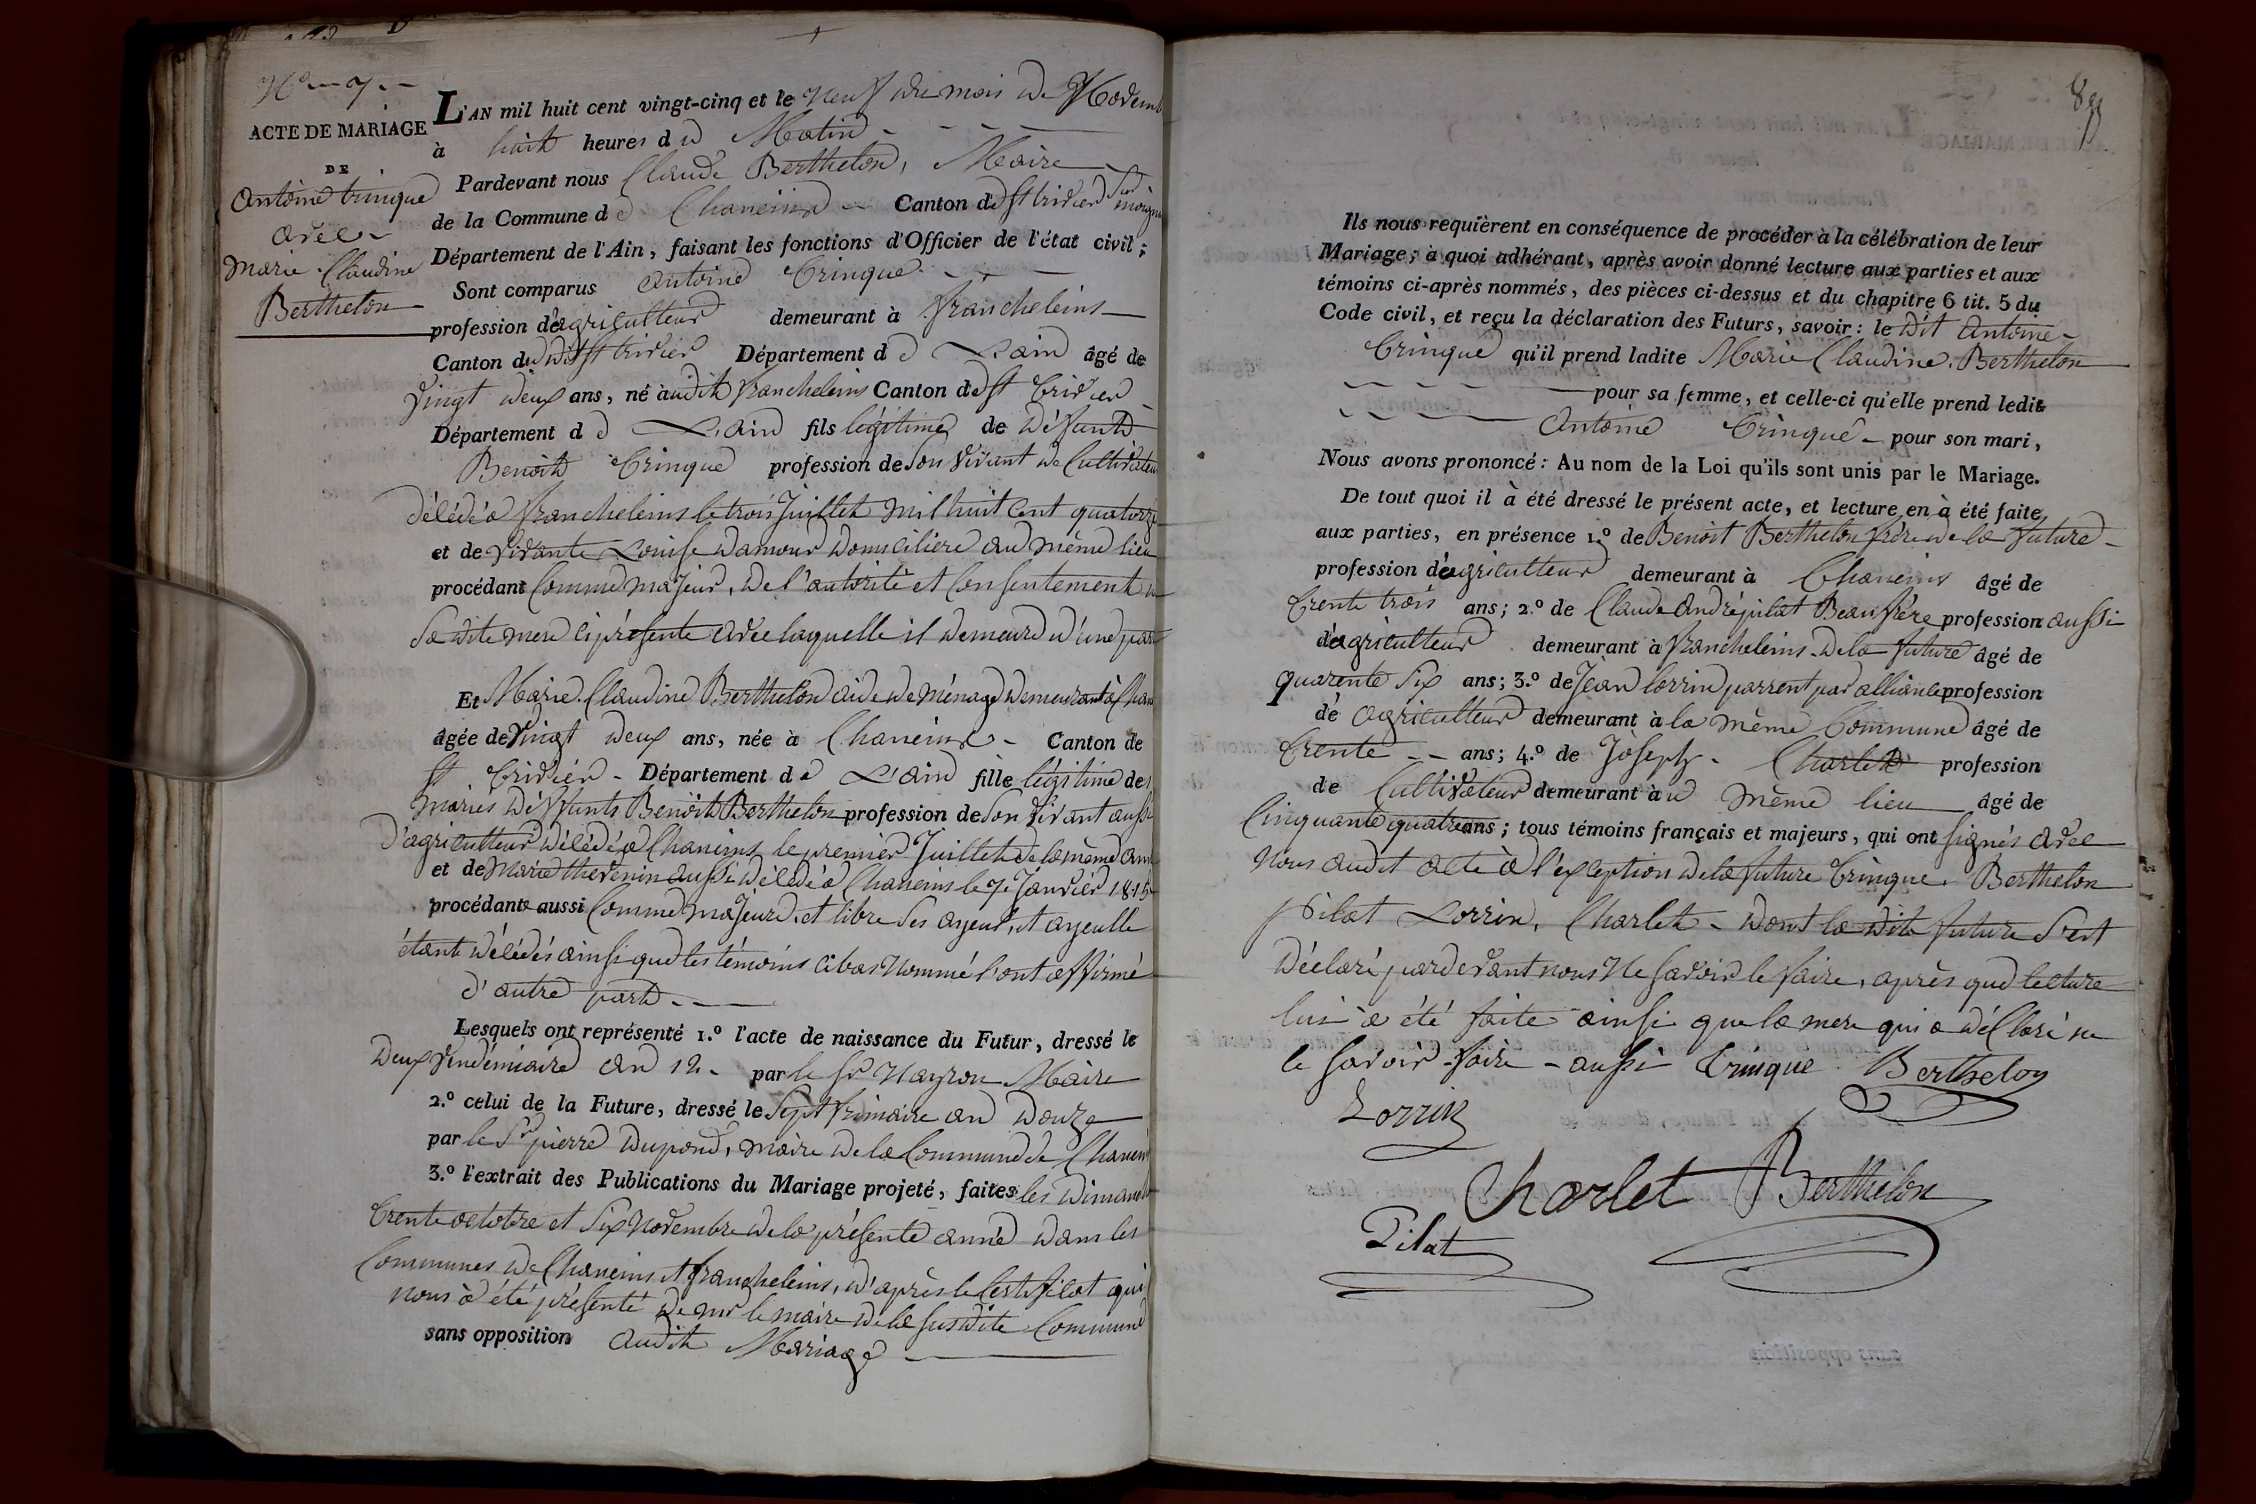 N.o 7.
ACTE DE MARIAGE
DE
Antoine trinque
avec
Marie Claudine
Berthelon
L'AN mil huit cent vingt-cinq et le neuf du mois de Novemb
à huit heures du Matin
Pardevant nous Claude Berthelon, Maire
de la Commune de Chaneins Canton de St trivier sur moignans
Département de l'Ain, faisant les fonctions d'Officier de l'état civil;
Sont comparus Antoine Trinque
profession d'agriculteur demeurant à francheleins
Canton dudit St trivier Département de L'ain âgé de
vingt deux ans, né audit francheleins Canton de St Trivier
Département de L'ain fils légitime de défunt
Benoit Trinque profession de son vivant de Cultivateur
décédé a francheleins le trois Juillet mil huit cent quatorze
et de vivante Louise damour domiciliere au même lieu
procédant Comme majeur, de l'autorité et Consentement de
Sa dite mere ci présente avec laquelle il demeure d'une part
Et Marie Claudine Berthelon aide de ménage demeurant à Chan
âgée de vingt deux ans, née à Chaneins Canton de
St Trivier Département de L'ain fille légitime des
mariés déffunts Benoit Berthelon profession de son vivant aussi
d'agriculteur décédé a Chaneins le premier Juillet de la même an
et de Marie thevenin aussi décédé a Chaneins le 7 Janvier 1815
procédante aussi Comme majeure et libre ses ayeul, et ayeulle
étant décédés ainsi que les témoins ci bas Nommé l'ont affirmé
d'autre part
Lesquels ont représenté 1.º l'acte de naissance du Futur, dressé le
deux vendémiaire an 12. par le Sr Nayron Maire
2.º celui de la Future, dressé le Sept frimaire an douze
par le Sr pierre dupond, maire de la Commune de Chanein
3.º l'extrait des Publications du Mariage projeté, faites les dimanch
trente octobre et Six novembre de la présente année dans les
Communes de Chaneins et francheleins, d'après le Certificat qui
nous a été présenté de mr le maire de la susdite Commune
sans opposition audit Mariage
89
Ils nous requièrent en conséquence de procéder à la célébration de leur
Mariage; à quoi adhérant, après avoir donné lecture aux parties et aux
témoins ci-après nommés, des pièces ci-dessus et du chapitre 6 tit. 5 du
Code civil, et reçu la déclaration des Futurs, savoir: le dit Antoine
Trinque qu'il prend ladite Marie Claudine Berthelon
pour sa femme, et celle-ci qu'elle prend ledit
Antoine Trinque pour son mari,
Nous avons prononcé: Au nom de la Loi qu'ils sont unis par le Mariage.
De tout quoi il à été dressé le présent acte, et lecture en à été faite
aux parties, en présence 1.º de Benoit Berthelon frère de la future
profession d'agriculteur demeurant à Chaneins âgé de
trente trois ans; 2.º de Claude André pilat Beaufrére profession aussi
d'agriculteur demeurant à francheleins de la future âgé de
quarente six ans; 3.º de Jean lorrin parrent par alliance profession
dé agriculteur demeurant à la même Commune âgé de
trente ans; 4.º de Joseph Charlet profession
de Cultivateur demeurant au même lieu âgé de
Cinquante quatre ans; tous témoins français et majeurs, qui ont signés avec
Nous audit acte à l'exception de la future Trinque. Berthelon
pilat Lorrin, Charlet dont la dite future s'est
déclaré pardevant nous Ne savoir le faire, après que lecture
lui a été faite ainsi que la mere qui a déclaré ne
le savoir faire aussi trinque Berthelon
Lorrin
Charlet Berthelon
Pilat